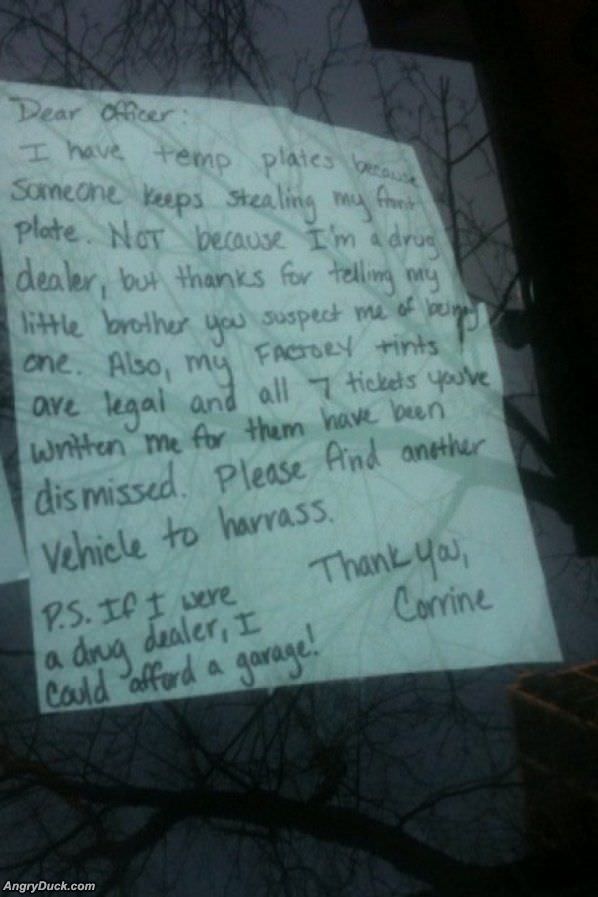 Dear Officer:
I have temp plates because
someone keeps stealing my front
plate. NOT because I'm a drug
dealer, but thanks for telling my
little brother you suspect me of being
one. Also, my FACTORY tints
are legal and all 7 tickets you've
written me for them have been
dismissed. Please find another
vehicle to harrass.
Thank you,
Corrine
P.S. If I were
a drug dealer, I
could afford a garage!
AngryDuck.com